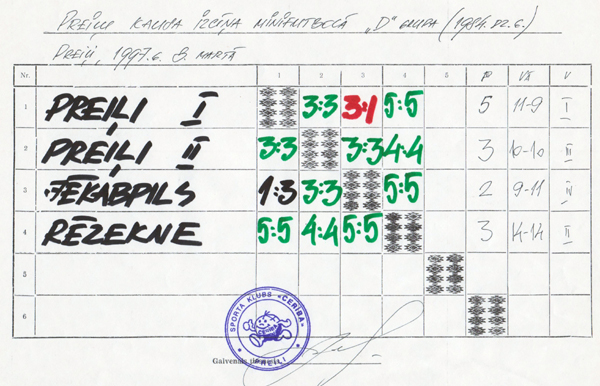 PREIĻU KAUSA IZCĪŅA MINIFUTBOLĀ „D" GRUPA (1984. DZ.G.)
PREIĻI, 1997.G. 8. MARTĀ
Nr. 1 2 3 4 5 6 P VĀ V
1 PREIĻI I 3:3 3:1 5:5 5 11-9 I
2 PREIĻI II 3:3 3:3 4:4 3 10-10 III
3 JĒKABPILS 1:3 3:3 5:5 2 9-11 IV
4 RĒZEKNE 5:5 4:4 5:5 3 14-14 II
5
6
SPORTA KLUBS «CERĪBA»
PREIĻI
Galvenais